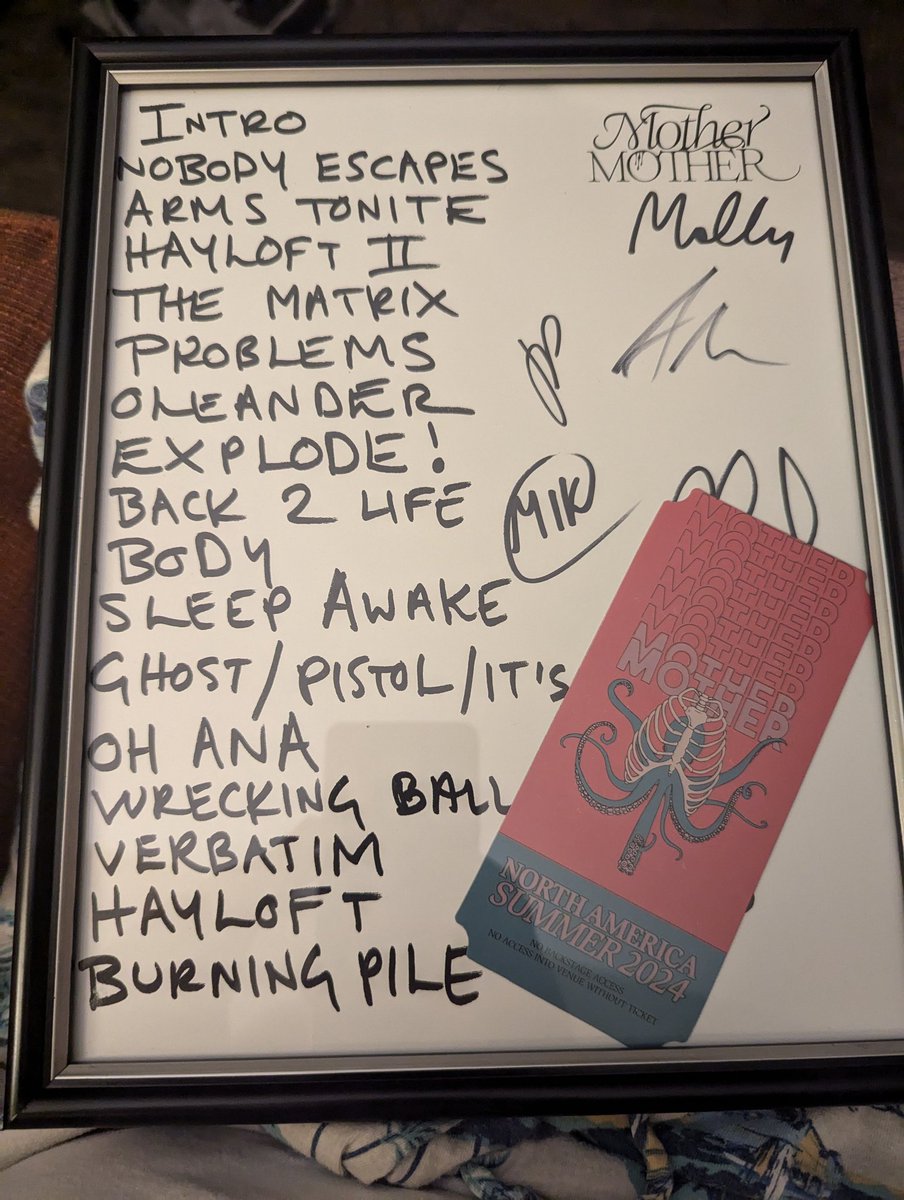 INTRO
NOBODY ESCAPES
ARMS TONITE
HAYLOFT II
THE MATRIX
PROBLEMS
OLEANDER
EXPLODE!
BACK 2 LIFE
BODY
SLEEP AWAKE
GHOST/PISTOL/IT'S
OH ANA
WRECKING BALL
VERBATIM
HAYLOFT
BURNING PILE
Mother
MOTHER
Molly
MIK
MOTHER
MOTHER
MOTHER
MOTHER
MOTHER
MOTHER
MOTHER
MOTHER
NORTH AMERICA
SUMMER 2024
NO BACKSTAGE ACCESS
NO ACCESS INTO VENUE WITHOUT TICKET.